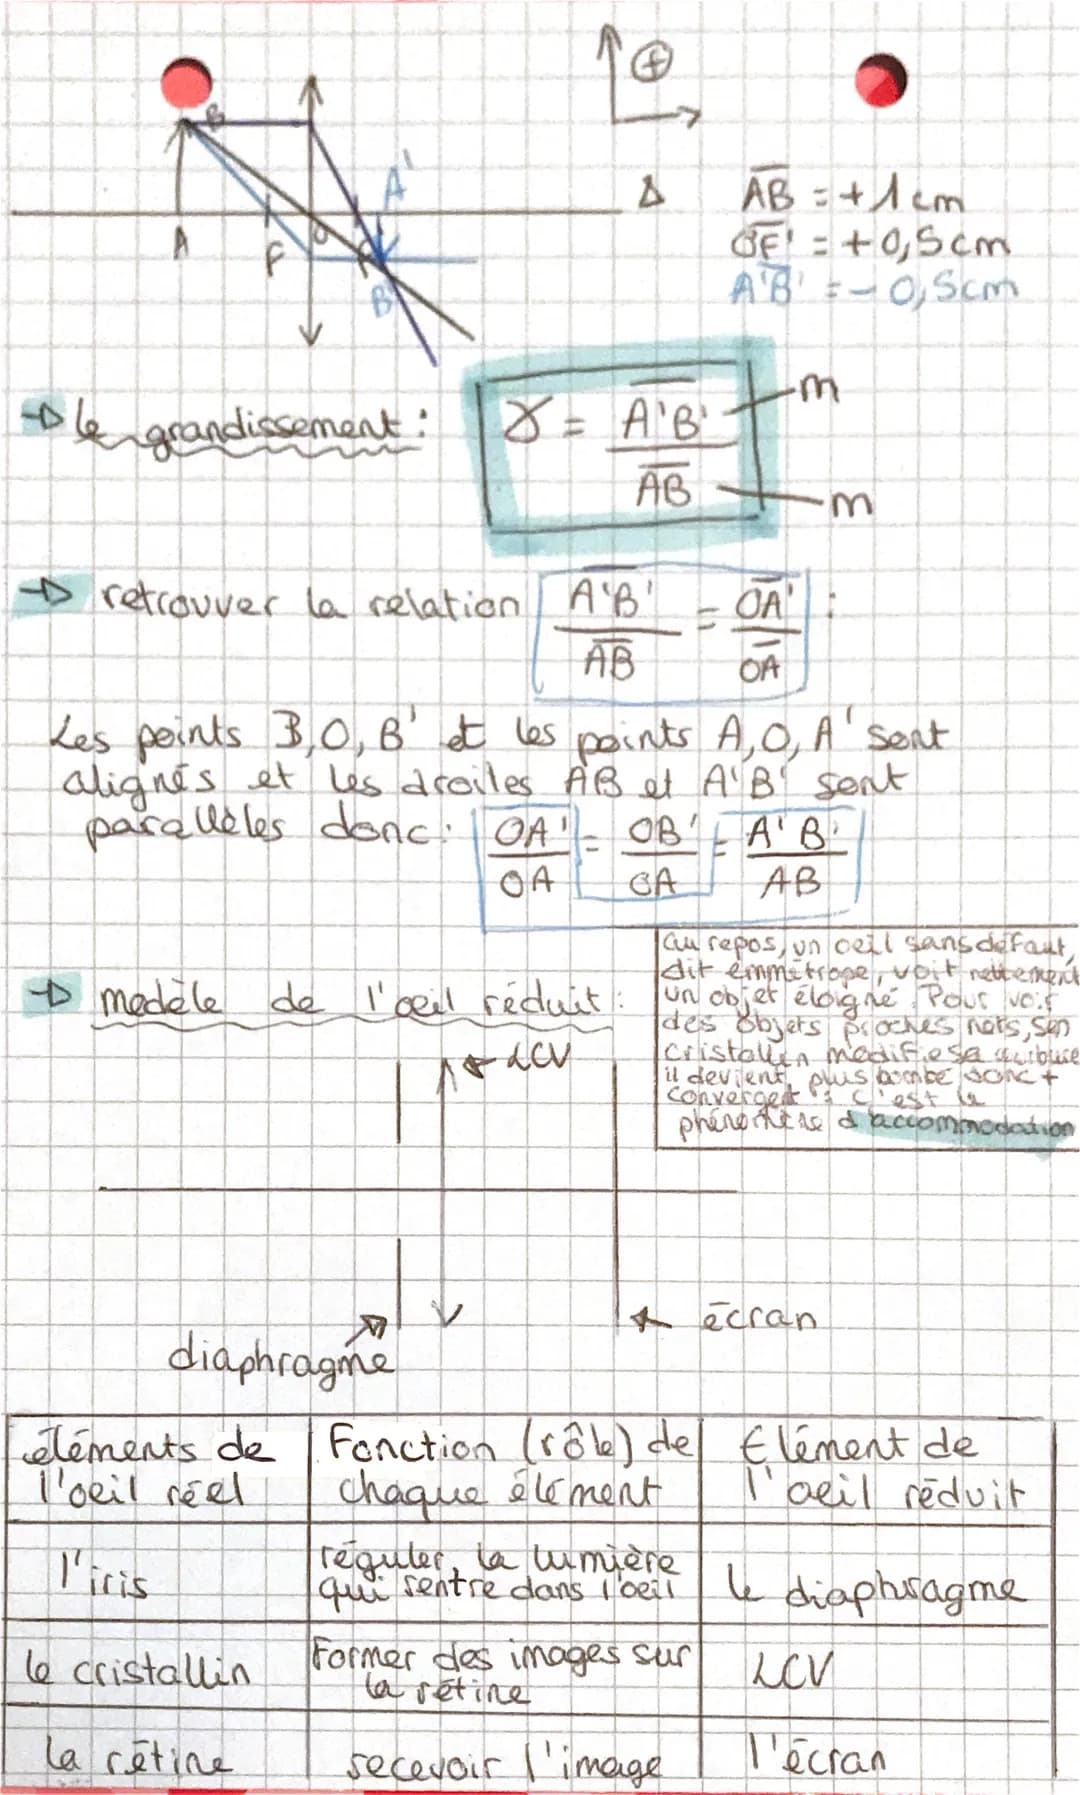 ⊕
B
A'
Δ
A
F
O
F'
B'
A̅B̅ = +1cm
O̅F̅'̅ = +0,5cm
A̅'̅B̅'̅ = -0,5cm
→ le grandissement : γ = A̅'̅B̅'̅ / A̅B̅
m
m
→ retrouver la relation A̅'̅B̅'̅ / A̅B̅ = O̅A̅'̅ / O̅A̅ :
Les points B,O,B' et les points A,O,A' sont
alignés et les droites AB et A'B' sont
parallèles donc : OA' / OA = OB' / OA = A'B' / AB
au repos, un oeil sans défaut,
dit emmétrope, voit nettement
un objet éloigné. Pour voir
des objets proches nets, son
cristallin modifie sa
il devient plus bombé donc +
convergent : c'est le
phénomène d'accommodation
→ modèle de l'oeil réduit :
LCV
écran
diaphragme
éléments de l'oeil réel | Fonction (rôle) de chaque élément | Elément de l'oeil réduit
l'iris | réguler la lumière qui rentre dans l'oeil | le diaphragme
le cristallin | Former des images sur la rétine | LCV
la rétine | recevoir l'image | l'écran